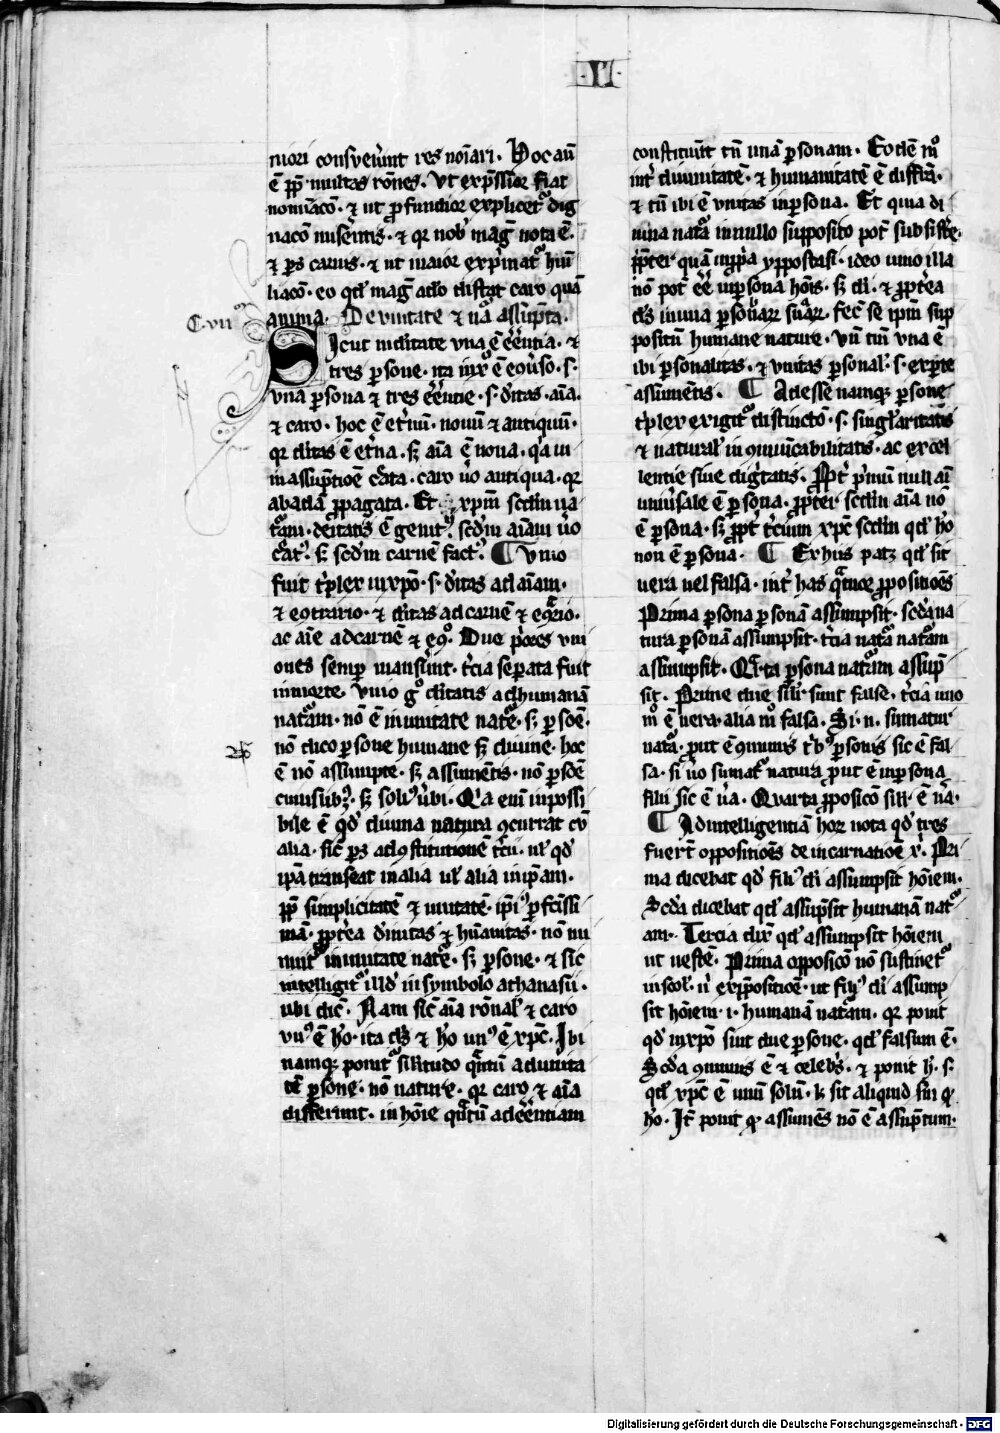 ·II·
niori consueuerũt res noiãri. Hoc aũ
ẽ ꝓp̃ multas rõnes. Vt exp̃ssior fiat
nominacõ. ⁊ ut profundior explicet᷑ dig
nacõ nascentis. ⁊ qr nob᷒ mag̃ nota ẽ.
⁊ ps carnis. ⁊ ut maior exp̃mat᷑ hũi
liacõ. eo qd̃ mag̃ a dõ distat caro quã
anima. De unitate ⁊ nã assũpta.
C. vii
Sicut in deitate vna ẽ ẽẽntia. ⁊
tres persone. ita in xp̃o ẽ eouẽso. s.
vna persona ⁊ tres ẽẽntie. s. ditas. aĩa.
⁊ caro. hoc ẽ etnũ. nouũ ⁊ antiquũ.
qr ditas ẽ etna. s; aĩa ẽ noua. qa in
in assũptiõe cata. caro uo antiqua. qr
ab adã propagata. Et xpm scdm na
turam. deitatis ẽ genit᷒. scdm aĩam uo
cat᷒. s; scdm carnẽ fact᷒. ¶ Vnio
fuit triplex in xpo. s. ditatis ad aĩam.
⁊ eqtrario. ⁊ ditas ad carnẽ ⁊ eqrio.
ac aĩe ad carnẽ ⁊ eqo. Due pores uni
ones semp mansũt. tcia seperata fuit
in morte. Vnio go ditatis ad humanã
naturam. nõ ẽ in unitate natẽ. s; p soẽ.
nõ dico psone humane s; diuine. hoc
ẽ nõ assumpte. s; assumẽtis. nõ psõe
cuiuslib;. s; soli᷒ ubi. Qa eni inpossi
bile ẽ qd diuina natura 9currat cũ
alia. sic ps ad 9stitutionẽ tcii. ul qd
ipa transeat in alia ul alia in ipam.
ꝓp̃ simplicitatẽ ⁊ unitatẽ. ipi᷒ pfcissi
mã. propterea diuinitas ⁊ hũanitas. nõ uni
unit᷑ in unitate natẽ. s; persone. ⁊ sic
intelligit᷑ illd in symbolo athanasii.
ubi dic̃. Nam sic aĩa rõnal ⁊ caro
vn᷒ ẽ ho. ita ds ⁊ ho un᷒ ẽ xpc. Ibi
namq; ponit᷑ silitudo qtũ ad unita
tẽ persone. nõ nature. qr caro ⁊ aĩa
differũt. in hoĩe qtũ ad ẽẽntiam
constituũt tñ unã personam. Eodẽ mo
int diuinitatẽ. ⁊ humanitatẽ ẽ diffña.
⁊ tñ ibi ẽ unitas in persona. Et quia di
uina nata in nullo supposito pot subsistẽ.
propter quã in ppa ypostasi. ideo unio illa
nõ pot ẽẽ in persona hoĩs. s; di. ⁊ propterea
ds in una personar suar. fec se ipm sup
positũ humane nature. Vñ tm̃ vna ẽ
ibi personalitas. ⁊ vnitas personal. s. ex parte
assumẽtis. ¶ Ad esse namq; persone
triplex exigit᷑ distinctõ. s. singlaritatis
⁊ natural in 9muicabilitatis. ac excel
lentie siue dignitatis. Ppt primũ null aĩ
uniusale ẽ persona. propter scdm aĩa nõ
ẽ persona. s; ppt tcium xpc scdm qd ho
non ẽ persona. ¶ Ex hiis pat; qd sit
uera uel falsa. int has qtuor propositiões
Prima persona personã assumpsit. scda na
tura personã assumpsit. tcia nata natam
assumpsit. Qrta persona naturam assup
sit. Prime due silr sunt false. tcia uno
mo ẽ uera. alia mo falsa. Si .n. sumatur
nata. put ẽ 9munis trib᷒ personis sic ẽ fal
sa. si uo sumat᷑ natura put ẽ in persona
filii sic ẽ ua. Quarta proposicõ silr ẽ ua.
¶ Ad intelligentiã hor nota qd tres
fuert oppositiões de incarnatiõe x. Pri
ma dicebat qd fili᷒ di assumpsit hoĩem.
Scda dicebat qd assupsit humanã nat
am. Tercia dix qd assumpsit hoĩem
ut uestẽ. Prima opposicõ nõ sustinet᷑
in scol. n exppositiõe. ut fili᷒ di assump
sit hoĩem. i. humanã natam. qr ponit
qd in xpo sint due persone. qd falsum ẽ.
Scda 9munis ẽ ⁊ celebs. ⁊ ponit h. s.
qd xpc ẽ unũ solũ. l; sit aliquid sm q
ho. It ponit q assumẽs nõ ẽ assuptum.
Digitalisierung gefördert durch die Deutsche Forschungsgemeinschaft - DFG